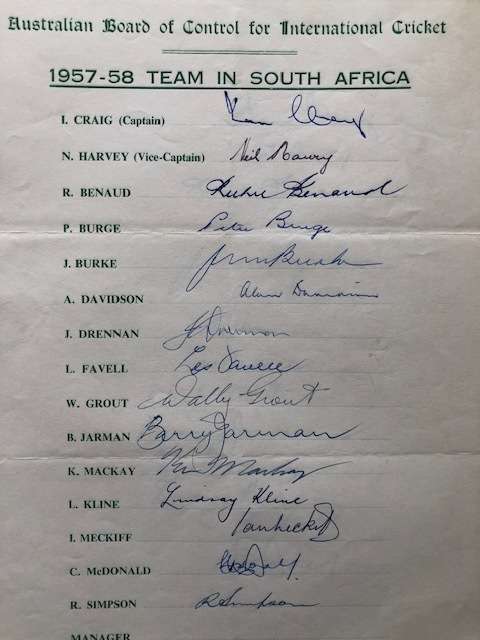 Australian Board of Control for International Cricket
1957-58 TEAM IN SOUTH AFRICA
I. CRAIG (Captain) Ian Craig
N. HARVEY (Vice-Captain) Neil Harvey
R. BENAUD Richie Benaud
P. BURGE Peter Burge
J. BURKE Jim Burke
A. DAVIDSON Alan Davidson
J. DRENNAN J Drennan
L. FAVELL Les Favell
W. GROUT Wally Grout
B. JARMAN Barry Jarman
K. MACKAY Ken Mackay
L. KLINE Lindsay Kline
I. MECKIFF Ian Meckiff
C. McDONALD
R. SIMPSON R Simpson
MANAGER